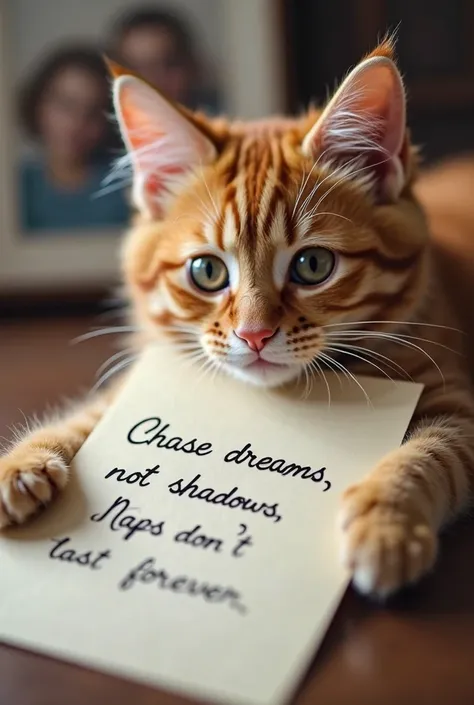 Chase dreams,
not shadows,
Naps don't
last forever.